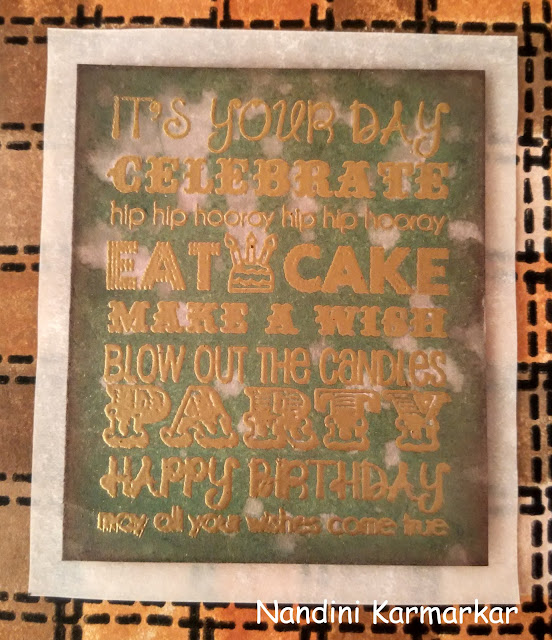 IT'S YOUR DAY
CELEBRATE
hip hip hooray hip hip hooray
EAT CAKE
MAKE A WISH
BLOW OUT THE CANDLES
PARTY
HAPPY BIRTHDAY
may all your wishes come true
Nandini Karmarkar